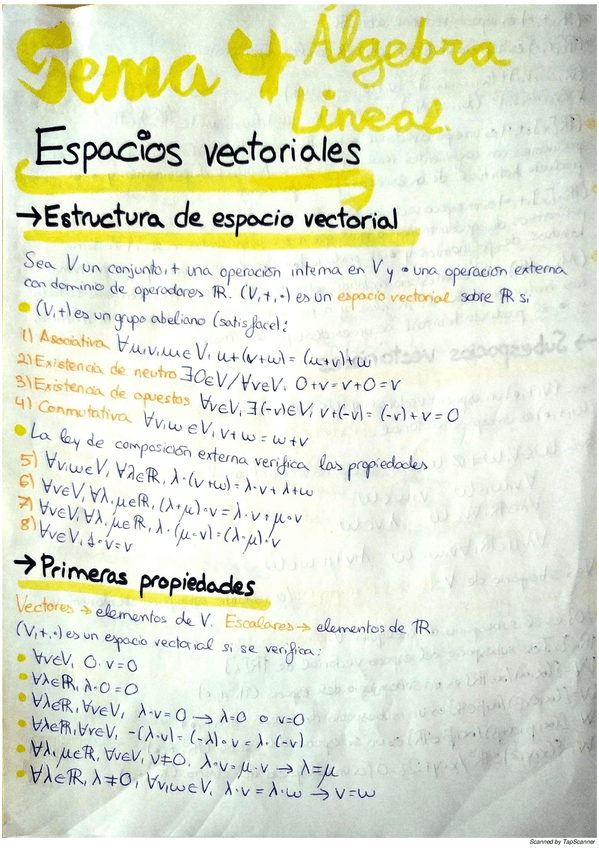 Tema 4 Álgebra
Lineal.
Espacios vectoriales
→Estructura de espacio vectorial
Sea V un conjunto, + una operación interna en V y • una operación externa
con dominio de operadores ℝ. (V,+,•) es un espacio vectorial sobre ℝ si
• (V,+) es un grupo abeliano (satisface):
1) Asociativa ∀u,v,w∈V, u+(v+w) = (u+v)+w
2) Existencia de neutro ∃0∈V/∀v∈V, 0+v=v+0=v
3) Existencia de opuestos ∀v∈V, ∃(-v)∈V, v+(-v)= (-v)+v=0
4) Conmutativa ∀v,w∈V, v+w = w+v
• La ley de composición externa verifica las propiedades
5) ∀v,w∈V, ∀λ∈ℝ, λ·(v+w)=λ·v+λ+w
6) ∀v∈V, ∀λ,μ∈ℝ, (λ+μ)•v=λ·v+μ•v
7) ∀v∈V, ∀λ,μ∈ℝ, λ·(μ·v)=(λ·μ)·v
8) ∀v∈V, 1·v=v
→Primeras propiedades
Vectores → elementos de V. Escalares → elementos de ℝ.
(V,+,·) es un espacio vectorial si se verifica:
• ∀v∈V, 0·v=0
• ∀λ∈ℝ, λ·0=0
• ∀λ∈ℝ, ∀v∈V, λ·v=0 → λ=0 o v=0
• ∀λ∈ℝ, ∀v∈V, -(λ·v)=(-λ)·v=λ·(-v)
• ∀λ,μ∈ℝ, ∀v∈V, v≠0, λ·v=μ·v → λ=μ
• ∀λ∈ℝ, λ≠0, ∀v,w∈V, λ·v=λ·w → v=w
Scanned by TapScanner